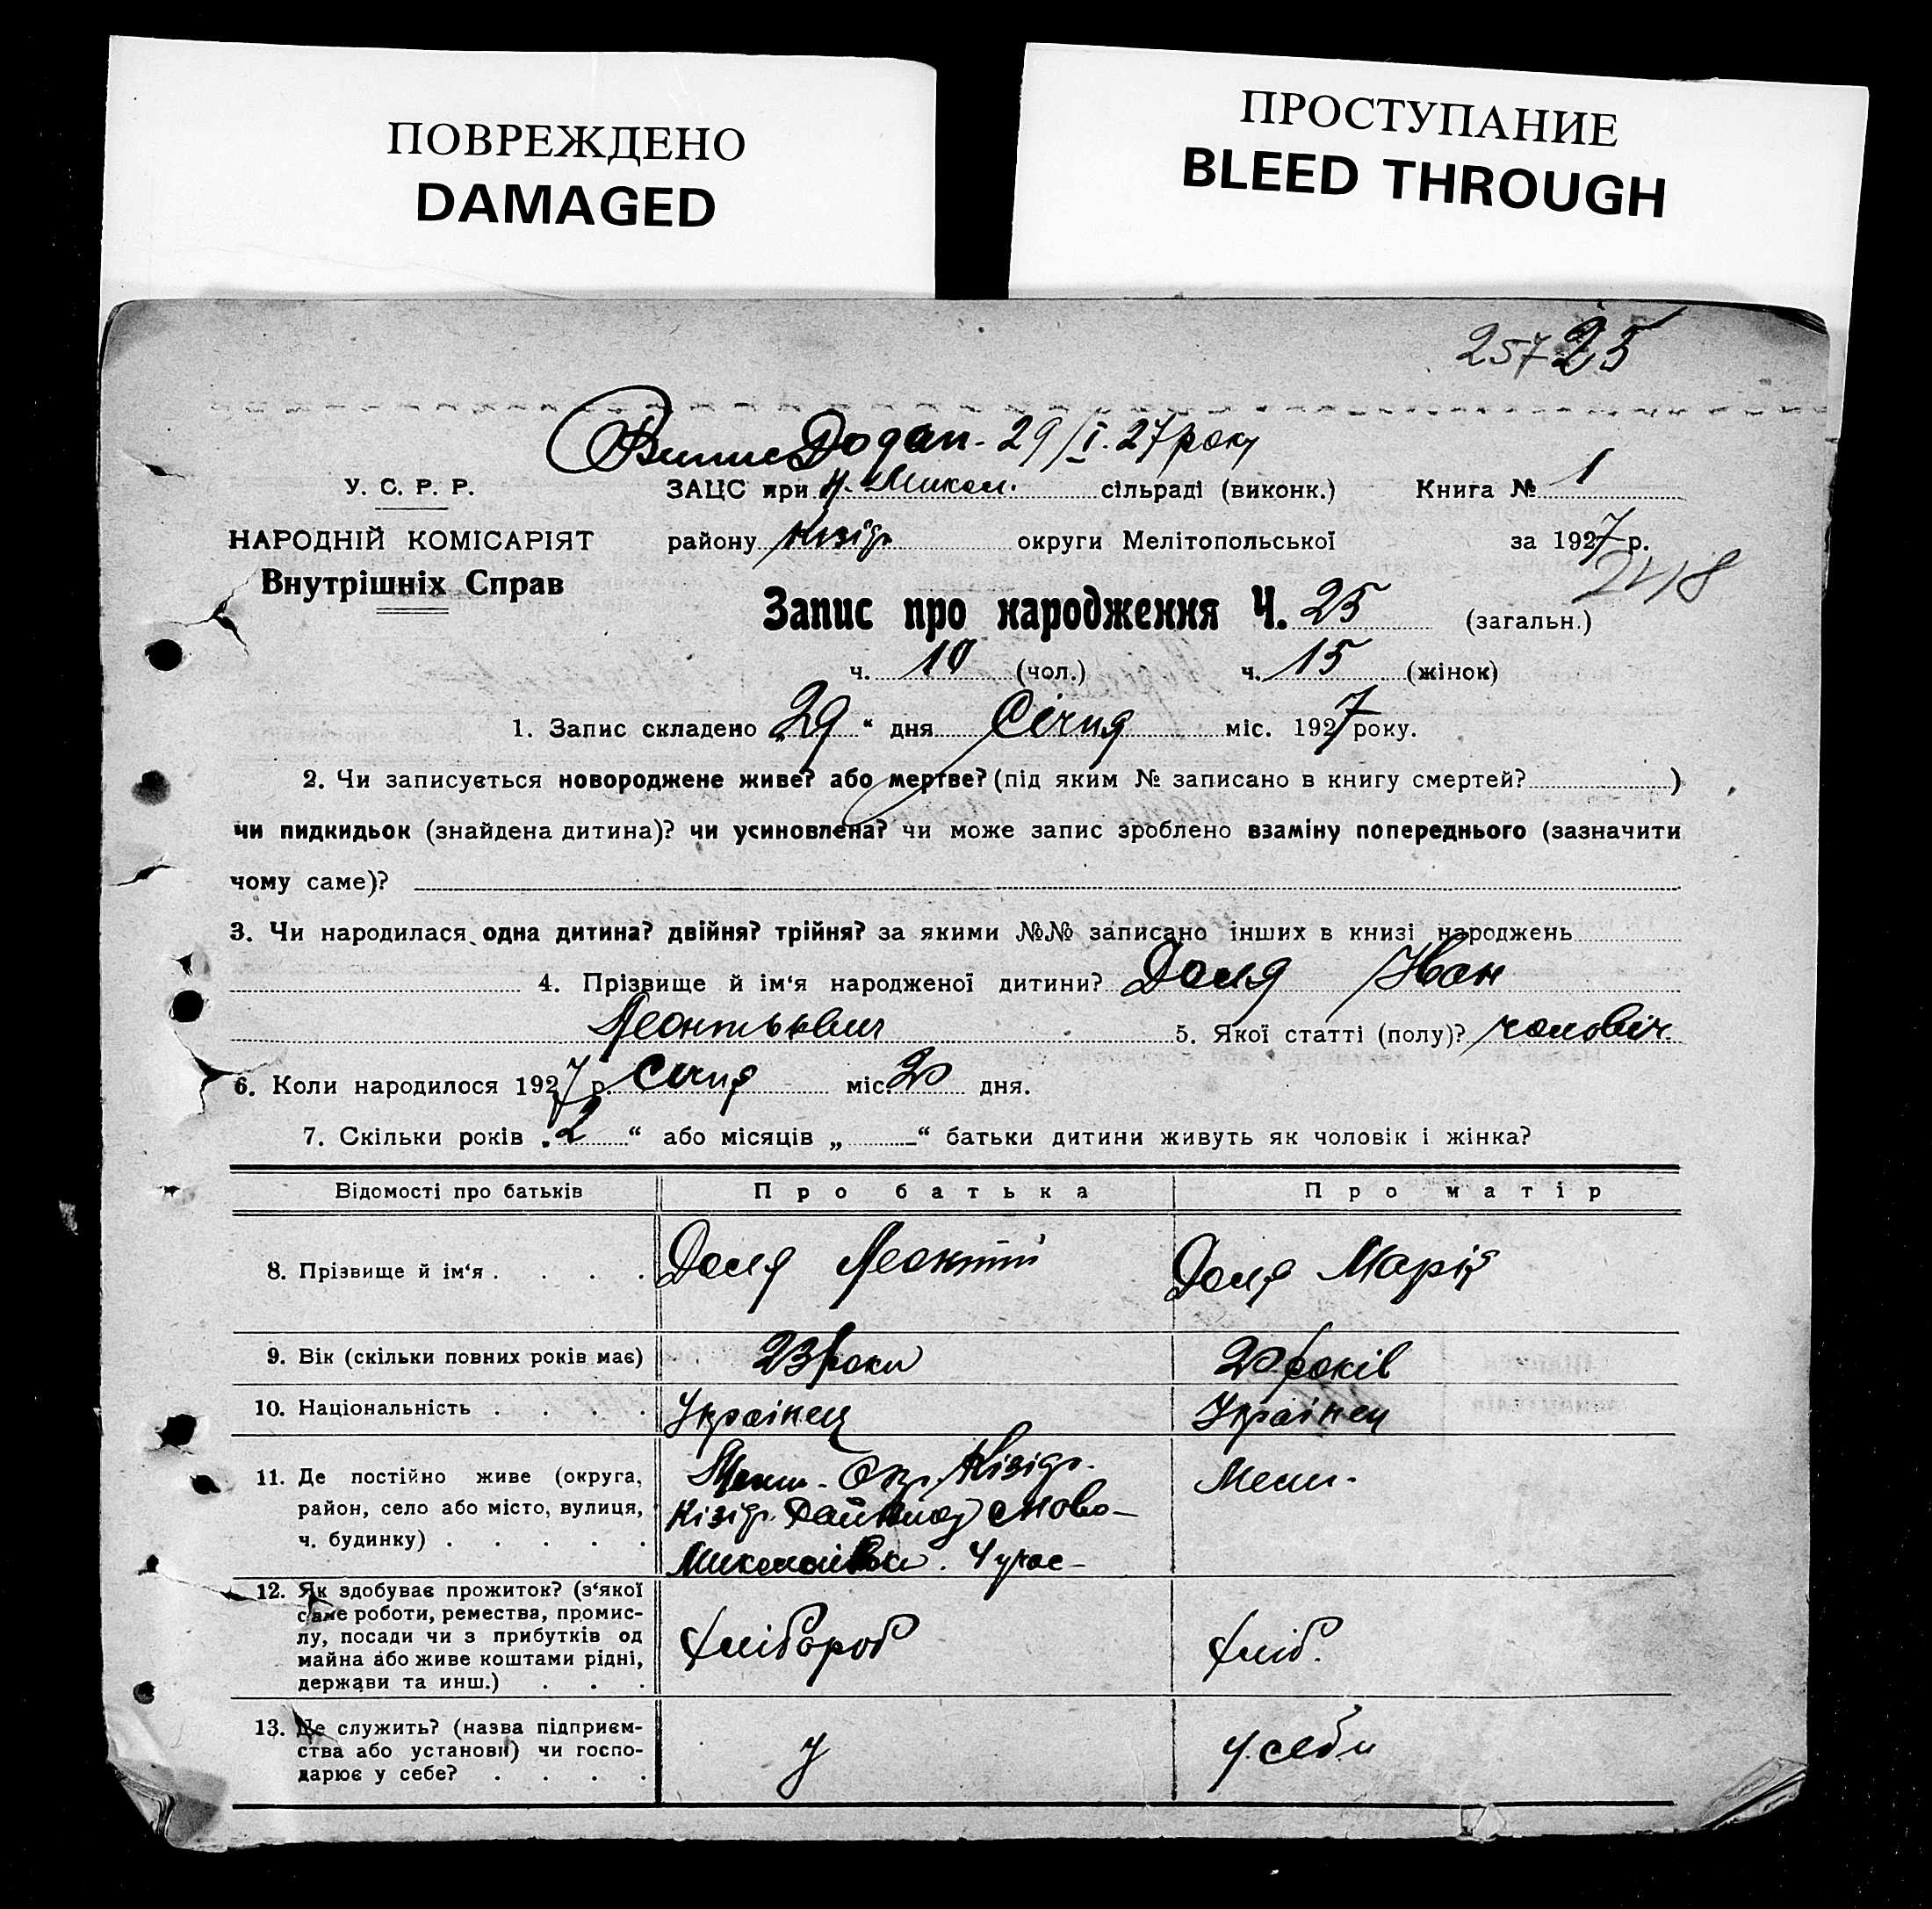 ПОВРЕЖДЕНО
DAMAGED
ПРОСТУПАНИЕ
BLEED THROUGH
257 25
Додан. 29/I. 27 року
У. С. Р. Р. ЗАЦС при Н. Микол. сільраді (виконк.) Книга № 1
НАРОДНІЙ КОМІСАРІЯТ району Кізіяр округи Мелітопольської за 1927 р.
Внутрішніх Справ
Запис про народження Ч. 25 (загальн.)
ч. 10 (чол.) ч. 15 (жінок)
1. Запис складено „29“ дня Січня міс. 1927 року.
2. Чи записується новороджене живе? або мертве? (під яким № записано в книгу смертей? )
чи пидкидьок (знайдена дитина)? чи усиновлена? чи може запис зроблено взаміну попереднього (зазначити
чому саме)?
3. Чи народилася одна дитина? двійня? трійня? за якими №№ записано інших в книзі народжень
4. Прізвище й ім‘я народженої дитини? Доля Іван
Леонтьевич 5. Якої статті (полу)? чоловіч.
6. Коли народилося 1927 р. Січня міс. 20 дня.
7. Скільки років „2“ або місяців „ “ батьки дитини живуть як чоловік і жінка?
Відомості про батьків Про батька Про матір
8. Прізвище й ім‘я . . . . Доля Леонтій Доля Марія
9. Вік (скільки повних років має) 23 роки 20 років
10. Національність . . . . Українец Українец
11. Де постійно живе (округа, Мелит. Окр. Кізіяр. Мели.
район, село або місто, вулиця, Кізіяр. Ново-
ч. будинку) . . . . . Миколаївки.
12. Як здобуває прожиток? (з‘якої
саме роботи, ремества, промис-
лу, посади чи з прибутків од Хлібороб Хліб.
майна або живе коштами рідні,
держави та инш.) . . .
13. Де служить? (назва підприєм-
ства або установи) чи госпо- у у себи
дарює у себе? . . . .